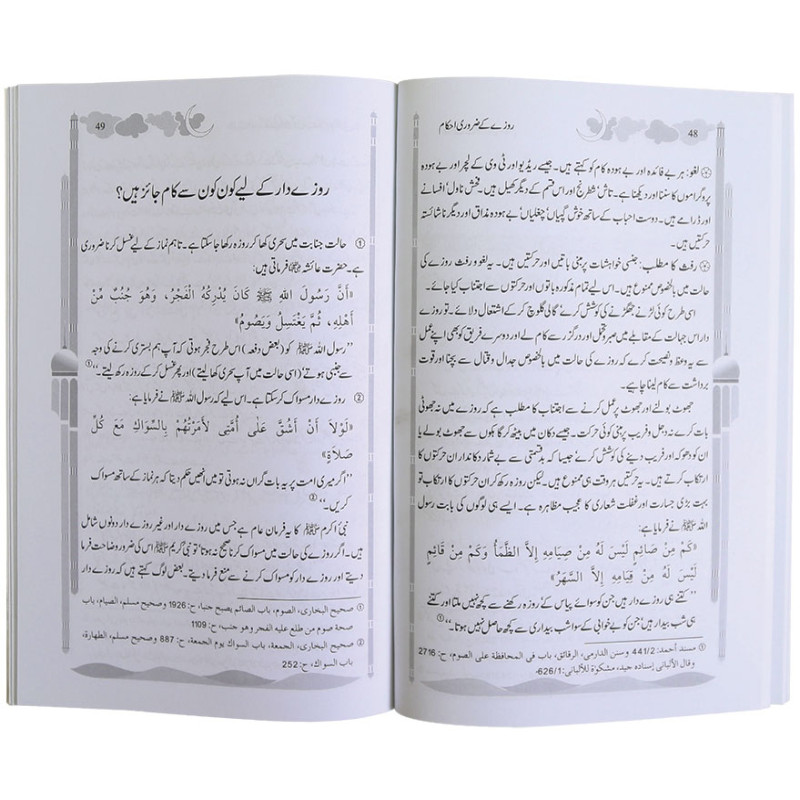 48
روزے کے ضروری احکام
لغو: ہر بے فائدہ اور بے ہودہ کام کو کہتے ہیں۔ جیسے ریڈیو اور ٹی وی کے لچر اور بے ہودہ
پروگراموں کا سننا اور دیکھنا ہے۔ تاش‘ شطرنج اور اس قسم کے دیگر کھیل ہیں۔ فحش ناول‘ افسانے
اور ڈرامے ہیں۔ دوست احباب کے ساتھ خوش گپیاں‘ چغلیاں‘ بے ہودہ مذاق اور دیگر ناشائستہ
حرکتیں ہیں۔
رفث کا مطلب: جنسی خواہشات پر مبنی باتیں اور حرکتیں ہیں۔ یہ لغو و رفث روزے کی
حالت میں بالخصوص ممنوع ہیں۔ اس لیے تمام مذکورہ باتوں اور حرکتوں سے اجتناب کیا جائے۔
اسی طرح کوئی لڑنے جھگڑنے کی کوشش کرے‘ گالی گلوچ کر کے اشتعال دلائے۔ تو روزے
دار اس جہالت کے مقابلے میں صبر و تحمل اور درگزر سے کام لے اور دوسرے فریق کو بھی اپنے عمل
سے یہ وعظ و نصیحت کرے کہ روزے کی حالت میں بالخصوص جدال و قتال سے بچنا اور قوت
برداشت سے کام لینا چاہیے۔
جھوٹ بولنے اور جھوٹ پر عمل کرنے سے اجتناب کا مطلب ہے کہ روزے میں نہ جھوٹی
بات کرے نہ دجل و فریب پر مبنی کوئی حرکت۔ جیسے دکان میں بیٹھ کر گاہکوں سے جھوٹ بولے یا
ان کو دھوکہ اور فریب دینے کی کوشش کرے‘ جیسا کہ بدقسمتی سے بے شمار دکاندار ان حرکتوں کا
ارتکاب کرتے ہیں۔ یہ حرکتیں ہر وقت ہی ممنوع ہیں۔ لیکن روزہ رکھ کر ان حرکتوں کا ارتکاب تو
بہت بڑی جسارت اور غفلت شعاری کا عجیب مظاہرہ ہے۔ ایسے ہی لوگوں کی بابت رسول
اللہ ﷺ نے فرمایا ہے:
«كَمْ مِنْ صَائِمٍ لَيْسَ لَهُ مِنْ صِيَامِهِ إِلاَّ الظَّمَأُ وَكَمْ مِنْ قَائِمٍ
لَيْسَ لَهُ مِنْ قِيَامِهِ إِلاَّ السَّهَرُ»
”کتنے ہی روزے دار ہیں جن کو سوائے پیاس کے‘ روزہ رکھنے سے کچھ نہیں ملتا اور کتنے
ہی شب بیدار ہیں‘ جن کو بے خوابی کے سوا شب بیداری سے کچھ حاصل نہیں ہوتا۔“①
① مسند أحمد: 441/2 وسنن الدارمي، الرقائق، باب في المحافظة على الصوم، ح: 2716
وقال الألباني إسناده جيد، مشكوة للألباني: 626/1-
49
روزے دار کے لیے کون کون سے کام جائز ہیں؟
① حالت جنابت میں سحری کھا کر روزہ رکھا جا سکتا ہے۔ تاہم نماز کے لیے غسل کرنا ضروری
ہے۔ حضرت عائشہ ؓ فرماتی ہیں:
«أَنَّ رَسُولَ اللهِ ﷺ كَانَ يُدْرِكُهُ الْفَجْرُ، وَهُوَ جُنُبٌ مِّنْ
أَهْلِهِ، ثُمَّ يَغْتَسِلُ وَيَصُومُ»
”رسول اللہ ﷺ کو (بعض دفعہ) اس طرح فجر ہوتی کہ آپ ہم بستری کرنے کی وجہ
سے جنبی ہوتے‘ (اسی حالت میں آپ سحری کھا لیتے) اور پھر غسل کر کے روزہ رکھ لیتے۔“①
② روزے دار مسواک کر سکتا ہے۔ اس لیے کہ رسول اللہ ﷺ نے فرمایا ہے:
«لَوْلاَ أَنْ أَشُقَّ عَلَى أُمَّتِي لأَمَرْتُهُمْ بِالسِّوَاكِ مَعَ كُلِّ
صَلاَةٍ»
”اگر میری امت پر یہ بات گراں نہ ہوتی تو میں انھیں حکم دیتا کہ ہر نماز کے ساتھ مسواک
کریں۔“②
نبی اکرم ﷺ کا یہ فرمان عام ہے جس میں روزے دار اور غیر روزے دار دونوں شامل
ہیں۔ اگر روزے کی حالت میں مسواک کرنا صحیح نہ ہوتا تو نبی کریم ﷺ اس کی ضرور وضاحت فرما
دیتے اور روزے دار کو مسواک کرنے سے منع فرما دیتے۔ بعض لوگ کہتے ہیں کہ روزے دار
① صحيح البخاري، الصوم، باب الصائم يصبح جنبا، ح: 1926 وصحيح مسلم، الصيام، باب
صحة صوم من طلع عليه الفجر وهو جنب، ح: 1109
② صحيح البخاري، الجمعة، باب السواك يوم الجمعة، ح: 887 وصحيح مسلم، الطهارة،
باب السواك، ح: 252